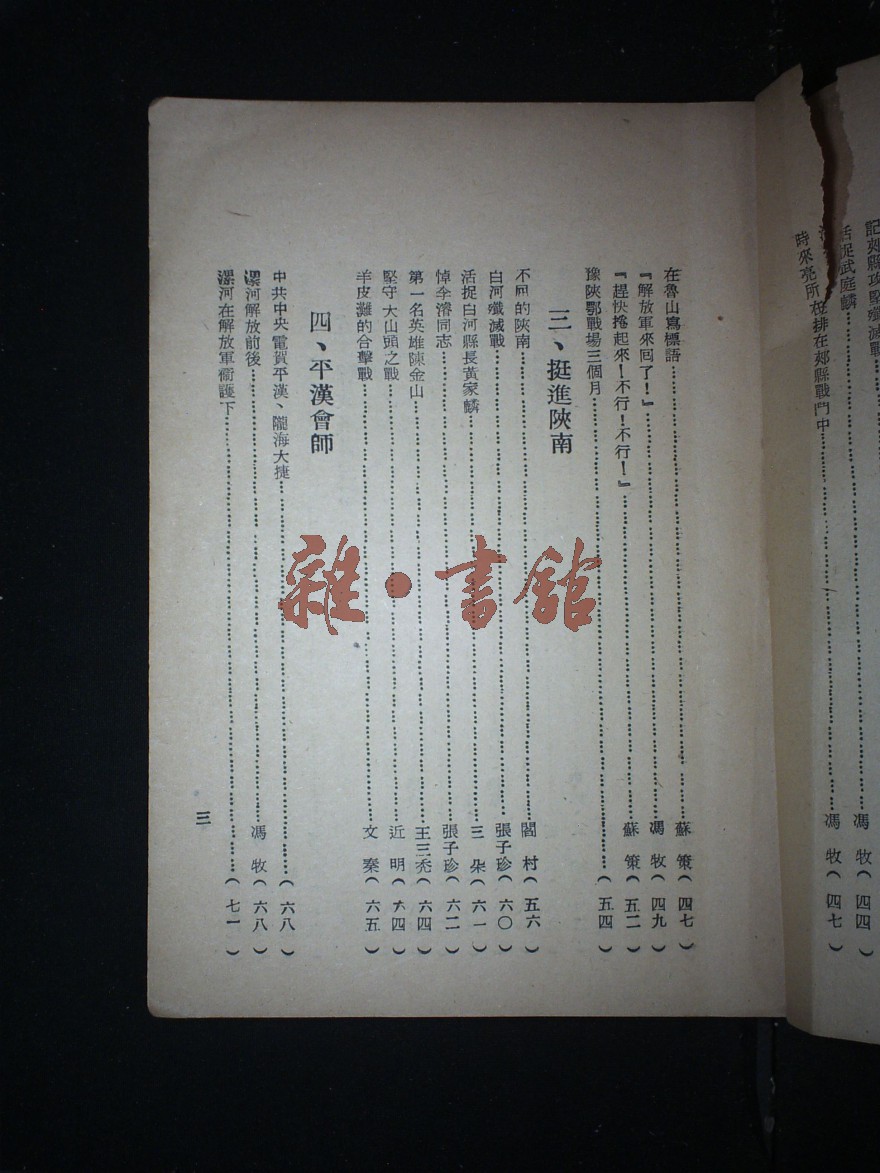 記郟縣攻堅殲滅戰 馮牧(四四)
活捉武庭麟 馮牧(四七)
時來亮所在排在郟縣戰鬥中
在魯山寫標語 蘇策(四七)
『解放軍來回了!』 馮牧(四九)
『趕快捲起來!不行!不行!』 蘇策(五二)
豫陝鄂戰場三個月 (五四)
三、挺進陝南
不同的陝南 閻村(五六)
白河殲滅戰 張子珍(六〇)
活捉白河縣長黃家麟 三朵(六一)
悼李濬同志 張子珍(六二)
第一名英雄陳金山 王三禿(六四)
堅守大山頭之戰 近明(六四)
羊皮灘的合擊戰 文秦(六五)
四、平漢會師
中共中央電賀平漢、隴海大捷 (六八)
漯河解放前後 馮牧(六八)
漯河在解放軍衞護下 (七一)
三
雜·書館